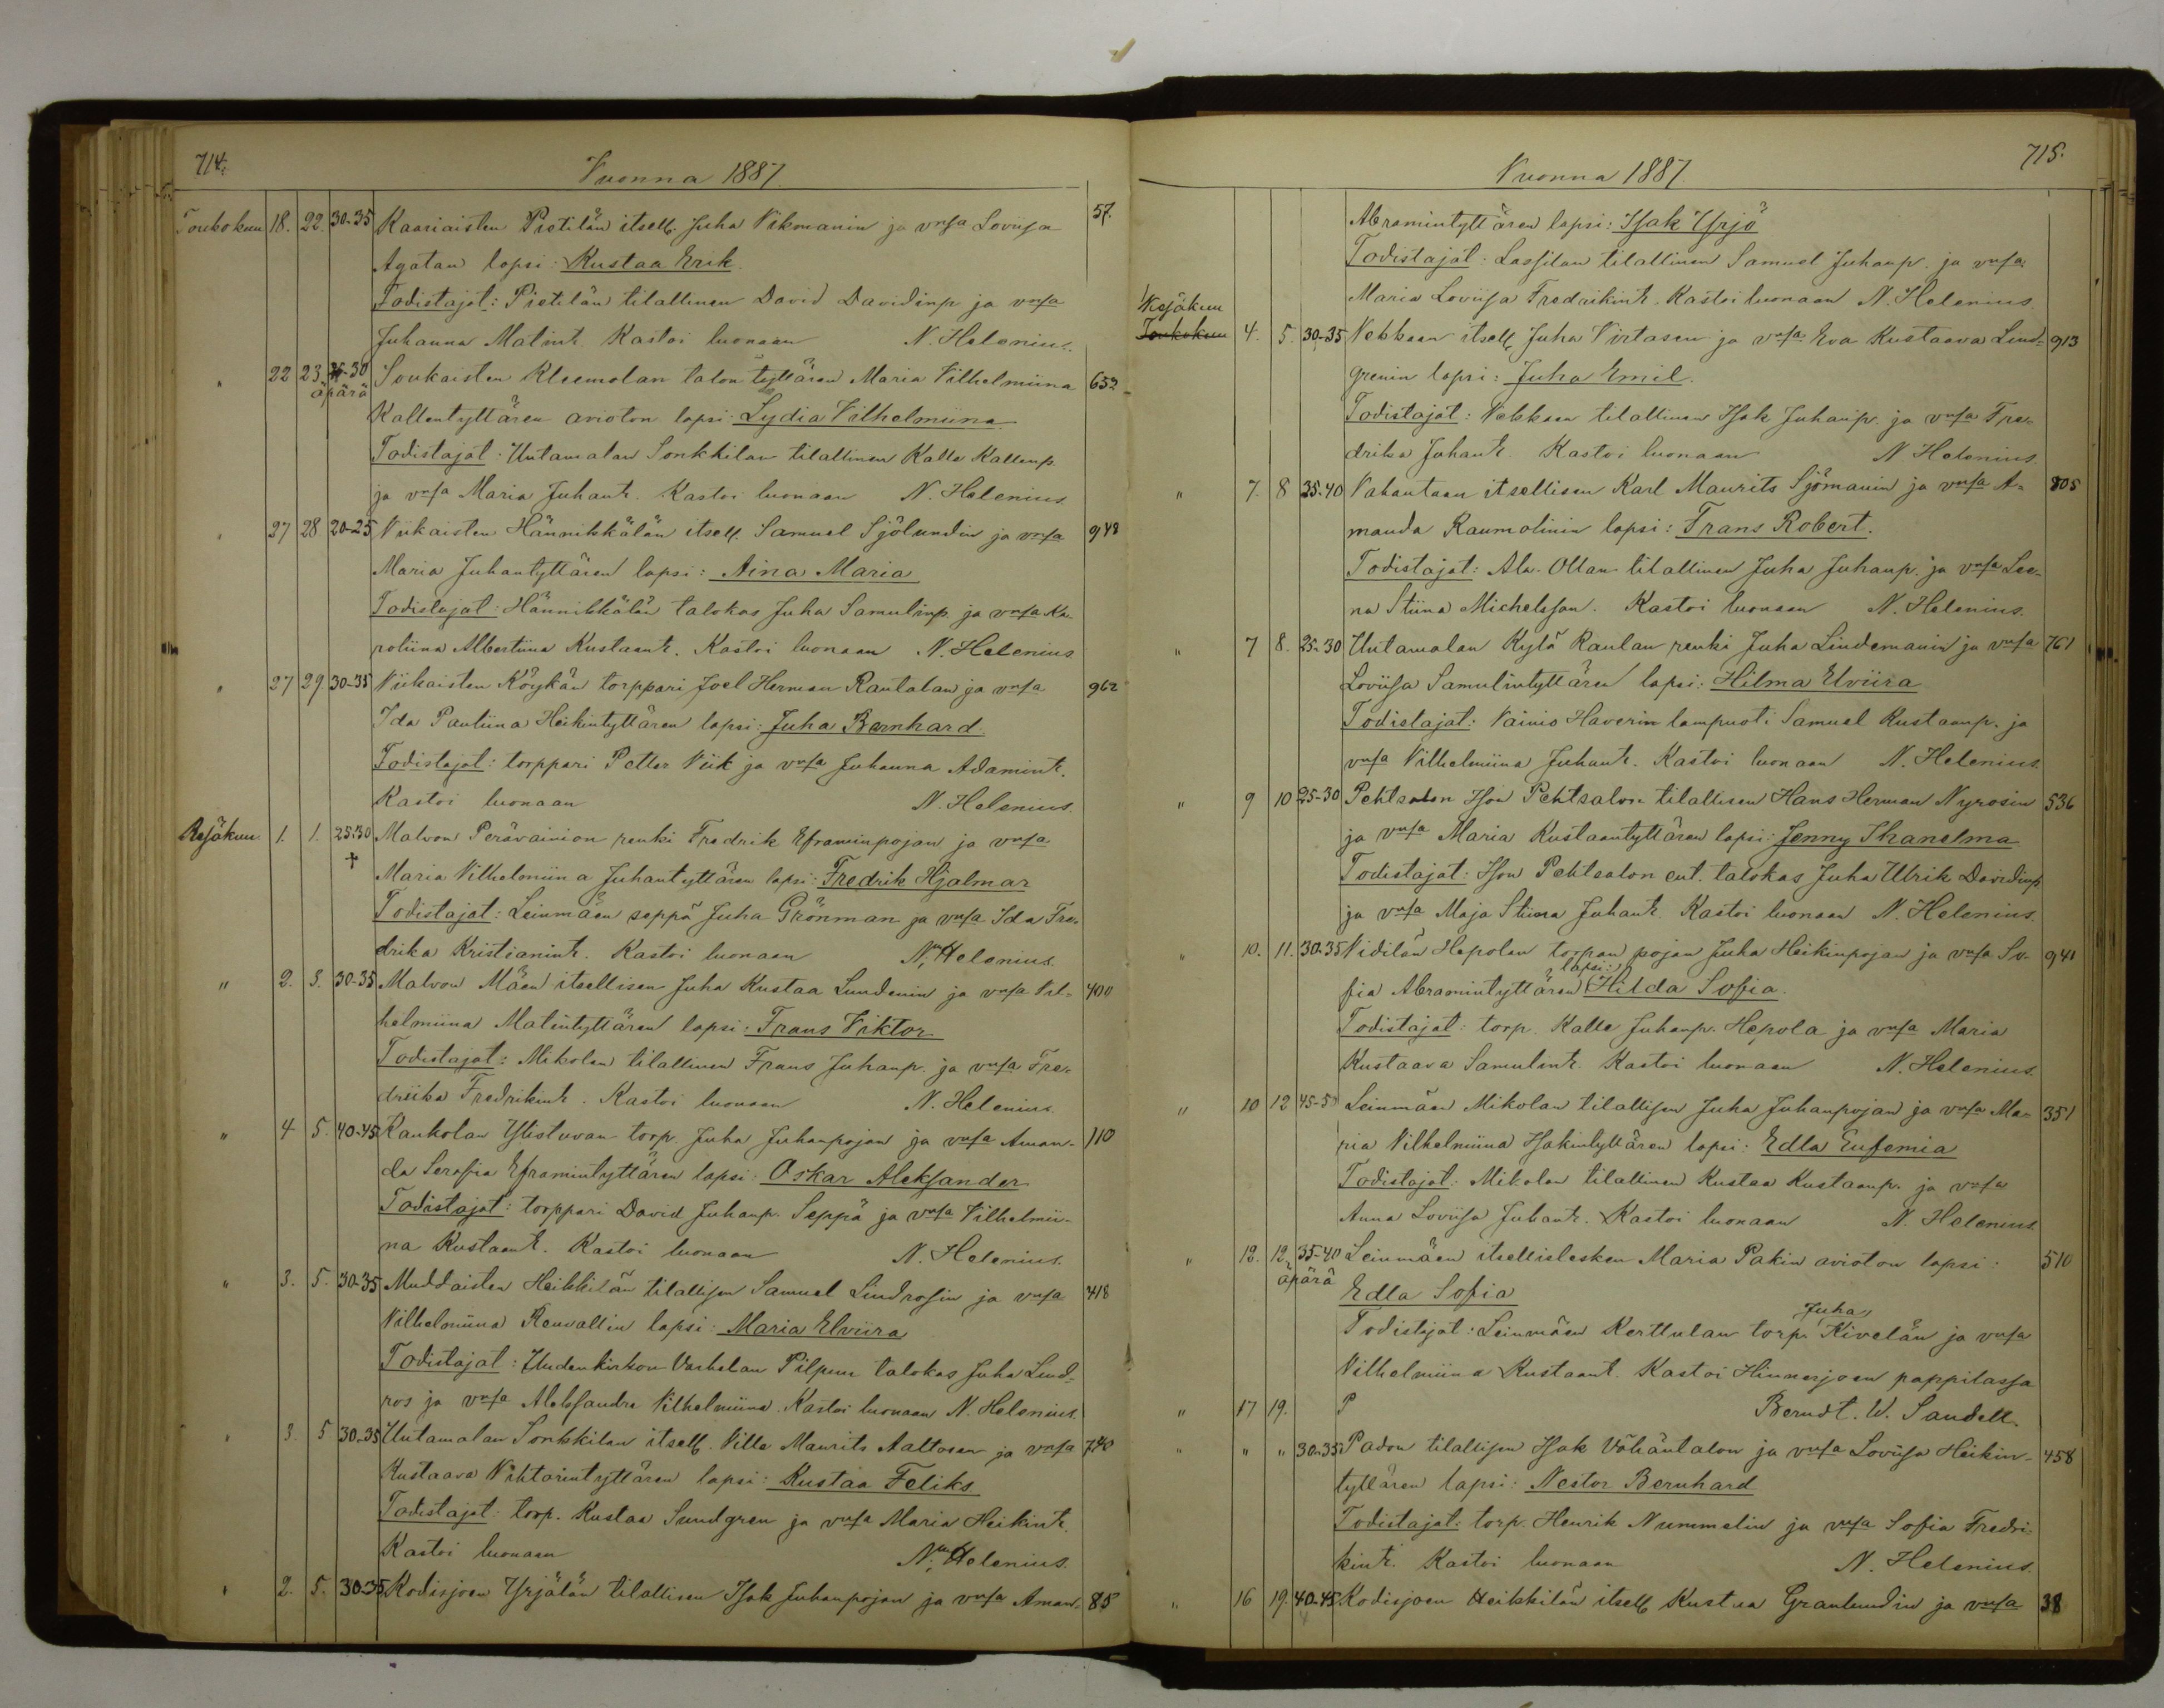 714.
Vuonna 1887.
Toukokuu 18. 22. 30-35 Kaariaisten Pietilän itsell. Juha Vikmanin ja vmsa Loviisa 57.
Agatan lapsi: Kustaa Erik.
Todistajat: Pietilän tilallinen David Davidinp. ja vmsa
Juhanna Matint. Kastoi luonaan N. Helenius.
" 22 23 25-30 Soukaisten Kleemolan talon tyttären Maria Vilhelmiina 652
äpärä
Kallentyttären avioton lapsi: Lydia Vilhelmiina
Todistajat: Untamalan Sonkkilan tilallinen Kalle Kallenp.
ja vmsa Maria Juhant. Kastoi luonaan N. Helenius.
" 27 28 20-25 Viikaisten Hännikkälän itsell. Samuel Sjölundin ja vmsa 948
Maria Juhantyttären lapsi: Aina Maria
Todistajat: Hännikkälän talokas Juha Samulinp. ja vmsa Ka-
roliina Albertiina Kustaant. Kastoi luonaan N. Helenius
" 27 29 30-35 Viikaisten Köykän torppari Joel Herman Rantalan ja vmsa 962
Ida Pauliina Heikintyttären lapsi: Juha Bernhard.
Todistajat: torppari Petter Viik ja vmsa Juhanna Adamint.
Kastoi luonaan N. Helenius.
Kesäkuu 1. 1. 25-30 Malvon Perävainion renki Fredrik Eframinpojan ja vmsa
†
Maria Vilhelmiina Juhantyttären lapsi: Fredrik Hjalmar
Todistajat: Leinmäen seppä Juha Grönman ja vmsa Ida Fre-
drika Kristianint. Kastoi luonaan N. Helenius.
" 2. 3. 30-35 Malvon Mäen itsellisen Juha Kustaa Lundenin ja vmsa Vil- 400
helmiina Matintyttären lapsi: Frans Viktor
Todistajat: Mikolan tilallinen Frans Juhanp. ja vmsa Fre-
driika Fredrikint. Kastoi luonaan N. Helenius.
" 4 5. 40-45 Kaukolan Ylistuvan torp. Juha Juhanpojan ja vmsa Aman- 110
da Serafia Eframintyttären lapsi: Oskar Aleksander
Todistajat: torppari David Juhanp. Seppä ja vmsa Vilhelmii-
na Kustaant. Kastoi luonaan N. Helenius.
" 3. 5. 30-35 Muddaisten Heikkilän tilallisen Samuel Lindrosin ja vmsa 418
Vilhelmiina Renvallin lapsi: Maria Elviira
Todistajat: Uudenkirkon Varhelan Pilpun talokas Juha Lind-
ros ja vmsa Aleksandra Vilhelmiina. Kastoi luonaan N. Helenius.
" 3. 5 30-35 Untamalan Sonkkilan itsell. Ville Maurits Aaltosen ja vmsa 740
Kustaava Vihtorintyttären lapsi: Kustaa Feliks
Todistajat: torp. Kustaa Sundgren ja vmsa Maria Heikint.
Kastoi luonaan N. Helenius.
" 2. 5. 30-35 Kodisjoen Yrjälän tilallisen Isak Juhanpojan ja vmsa Aman- 85
715.
Vuonna 1887.
Abramintyttären lapsi: Isak Yrjö
Todistajat: Lassilan tilallinen Samuel Juhanp. ja vmsa
Maria Loviisa Fredrikint. Kastoi luonaan N. Helenius.
Kesäkuu
Toukokuu 4. 5. 30-35 Vekkaan itsell. Juha Virtasen ja vmsa Eva Kustaava Lind- 913
grenin lapsi: Juha Emil.
Todistajat: Vekkaan tilallinen Isak Juhanp. ja vmsa Fre-
drika Juhant. Kastoi luonaan N Helenius.
" 7. 8 35-40 Vahantaan itsellisen Karl Maurits Sjömanin ja vmsa A- 805
manda Raumolinin lapsi: Frans Robert.
Todistajat: Ala-Ollan tilallinen Juha Juhanp. ja vmsa Lee-
na Stiina Michelsson. Kastoi luonaan N. Helenius.
" 7 8. 25-30 Untamalan Kylä Raulan renki Juha Lindemanin ja vmsa 761
Loviisa Samulintyttären lapsi: Hilma Elviira
Todistajat: Vainio Haverin lampuoti Samuel Kustaanp. ja
vmsa Vilhelmiina Juhant. Kastoi luonaan N. Helenius.
" 9 10 25-30 Pehtsalon Ison Pehtsalon tilallisen Hans Herman Nyrosin 536
ja vmsa Maria Kustaantyttären lapsi: Jenny Thanelma
Todistajat: Ison Pehtsalon ent. talokas Juha Ulrik Davidinp.
ja vmsa Maja Stiina Juhant. Kastoi luonaan N. Helenius.
" 10. 11. 30-35 Vidilän Hepolan torpan pojan Juha Heikinpojan ja vmsa So- 941
lapsi:
fia Abramintyttären Hilda Sofia.
Todistajat: torp. Kalle Juhanp. Hepola ja vmsa Maria
Kustaava Samulint. Kastoi luonaan N. Helenius.
" 10 12 45-50 Leinmäen Mikolan tilallisen Juha Juhanpojan ja vmsa Ma- 351
ria Vilhelmiina Isakintyttären lapsi: Edla Eufemia
Todistajat: Mikolan tilallinen Kustaa Kustaanp. ja vmsa
Anna Loviisa Juhant. Kastoi luonaan N. Helenius.
" 12. 12. 35-40 Leinmäen itsellislesken Maria Pakin avioton lapsi: 510
äpärä
Edla Sofia
Juha
Todistajat: Leinmäen Kerttulan torp. Kivelän ja vmsa
Vilhelmiina Kustaant. Kastoi Hinnerjoen pappilassa
" 17 19. P Berndt. W. Sandell.
" " " 30-35 Padon tilallisen Isak Vähäntalon ja vmsa Loviisa Heikin- 458
tyttären lapsi: Nestor Bernhard
Todistajat: torp. Henrik Nummelin ja vmsa Sofia Fredri-
kint. Kastoi luonaan N. Helenius.
" 16 19. 40-45 Kodisjoen Heikkilän itsell. Kustaa Granlundin ja vmsa 38